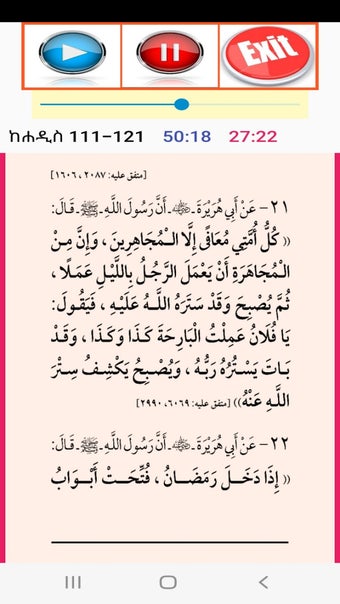 Exit
ከሐዲስ 111-121 50:18 27:22
[متفق عليه: ٢٠٨٧، ١٦٠٦]
٢١- عَنْ أَبِي هُرَيْرَةَ ـ رضي الله عنه ـ أَنَّ رَسُولَ اللَّهِ ـ ﷺ ـ قَالَ:
(( كُلُّ أُمَّتِي مُعَافًى إِلَّا الْمُجَاهِرِينَ، وَإِنَّ مِنَ
الْمُجَاهَرَةِ أَنْ يَعْمَلَ الرَّجُلُ بِاللَّيْلِ عَمَلًا،
ثُمَّ يُصْبِحَ وَقَدْ سَتَرَهُ اللَّهُ عَلَيْهِ، فَيَقُولَ:
يَا فُلَانُ عَمِلْتُ الْبَارِحَةَ كَذَا وَكَذَا، وَقَدْ
بَاتَ يَسْتُرُهُ رَبُّهُ، وَيُصْبِحُ يَكْشِفُ سِتْرَ
اللَّهِ عَنْهُ)) [متفق عليه: ٦٠٦٩، ٢٩٩٠]
٢٢- عَنْ أَبِي هُرَيْرَةَ ـ رضي الله عنه ـ أَنَّ رَسُولَ اللَّهِ ـ ﷺ ـ قَالَ:
(( إِذَا دَخَلَ رَمَضَانُ، فُتِّحَتْ أَبْوَابُ